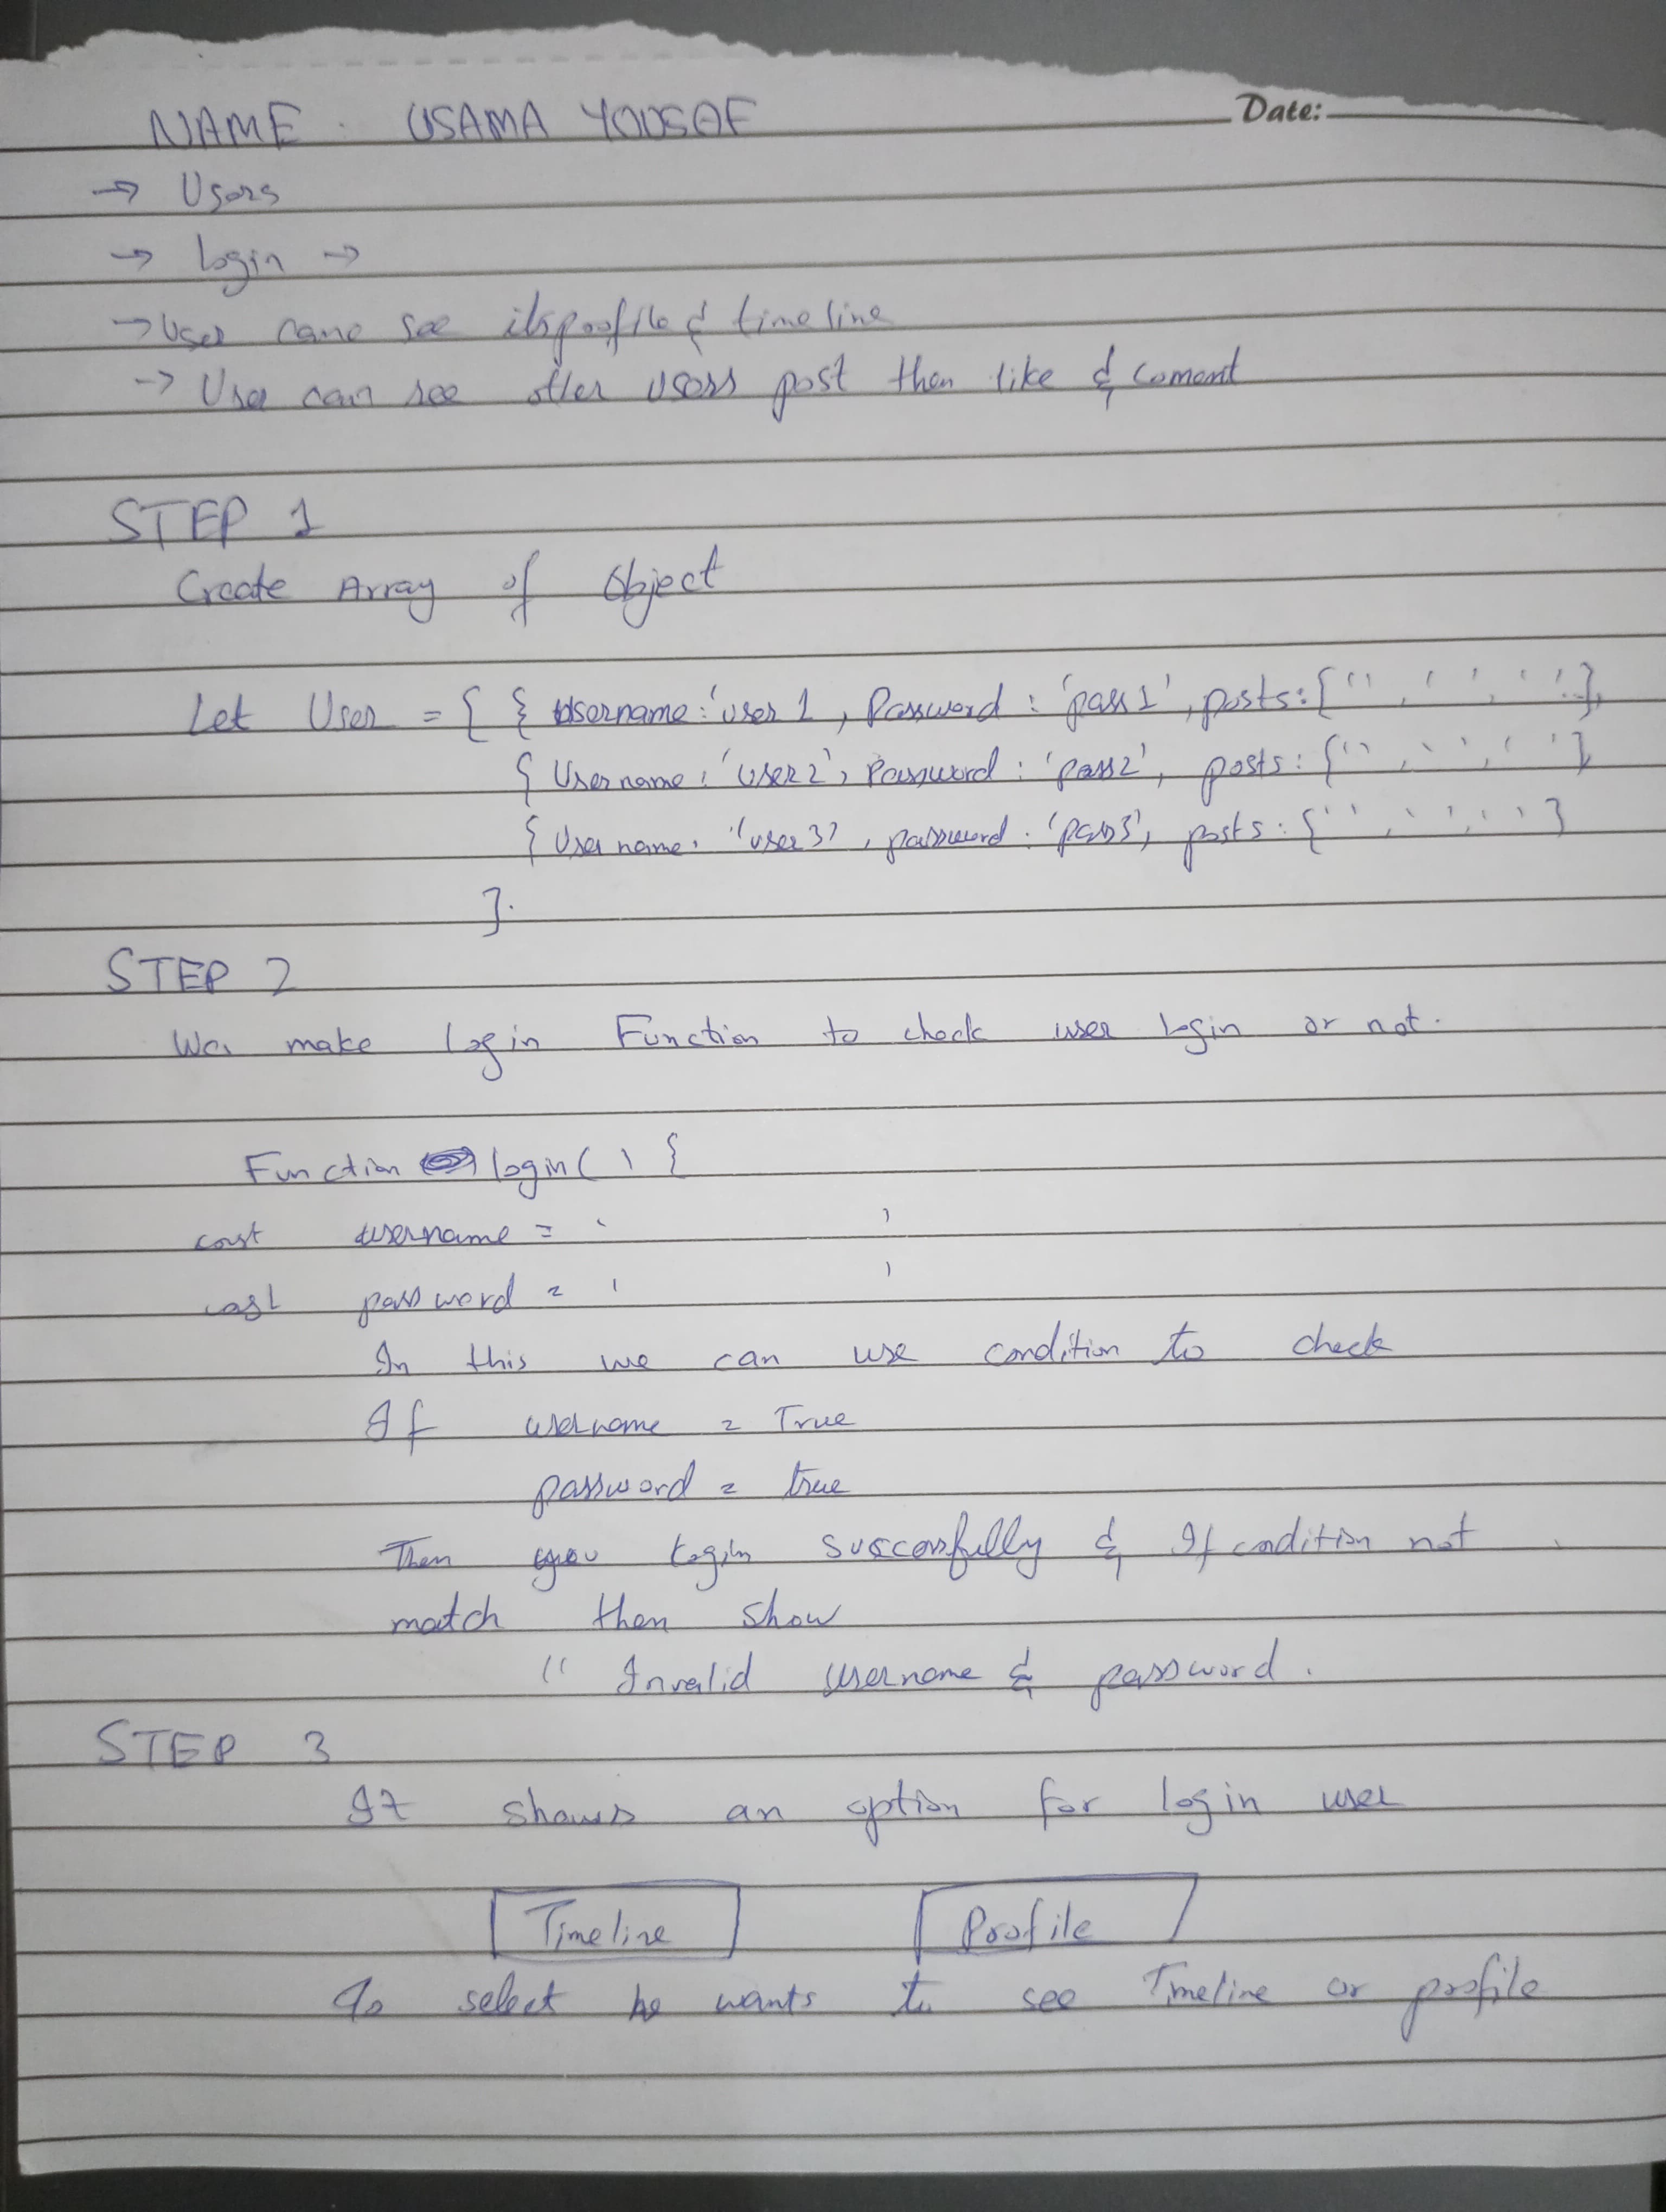 NAME : USAMA YOUSAF
Date:
→ Users
→ login →
→ User cane see itsprofile & timeline
→ User can see other users post then like & coment
STEP 1
Create Array of Object
Let User = [ { Username : 'user 1 , Password : 'pass1' , posts : ['' , ' ' , ' ' ],
{ Username : 'user2' , Password : 'pass2' , posts : ['' , ' ' , ' ' ]
{ Username : 'user3' , password : 'pass3' , posts : {'' , ' ' , ' ' }
].
STEP 2
We make login Function to check user login or not.
Function login ( ) {
cost username = ' '
cost password = ' '
In this we can use condition to check
If username = True
password = true
Then you login successfully & If condition not
match then show
" Invalid username & password .
STEP 3
It shows an option for login user
Timeline Profile
To select he wants to see Timeline or profile